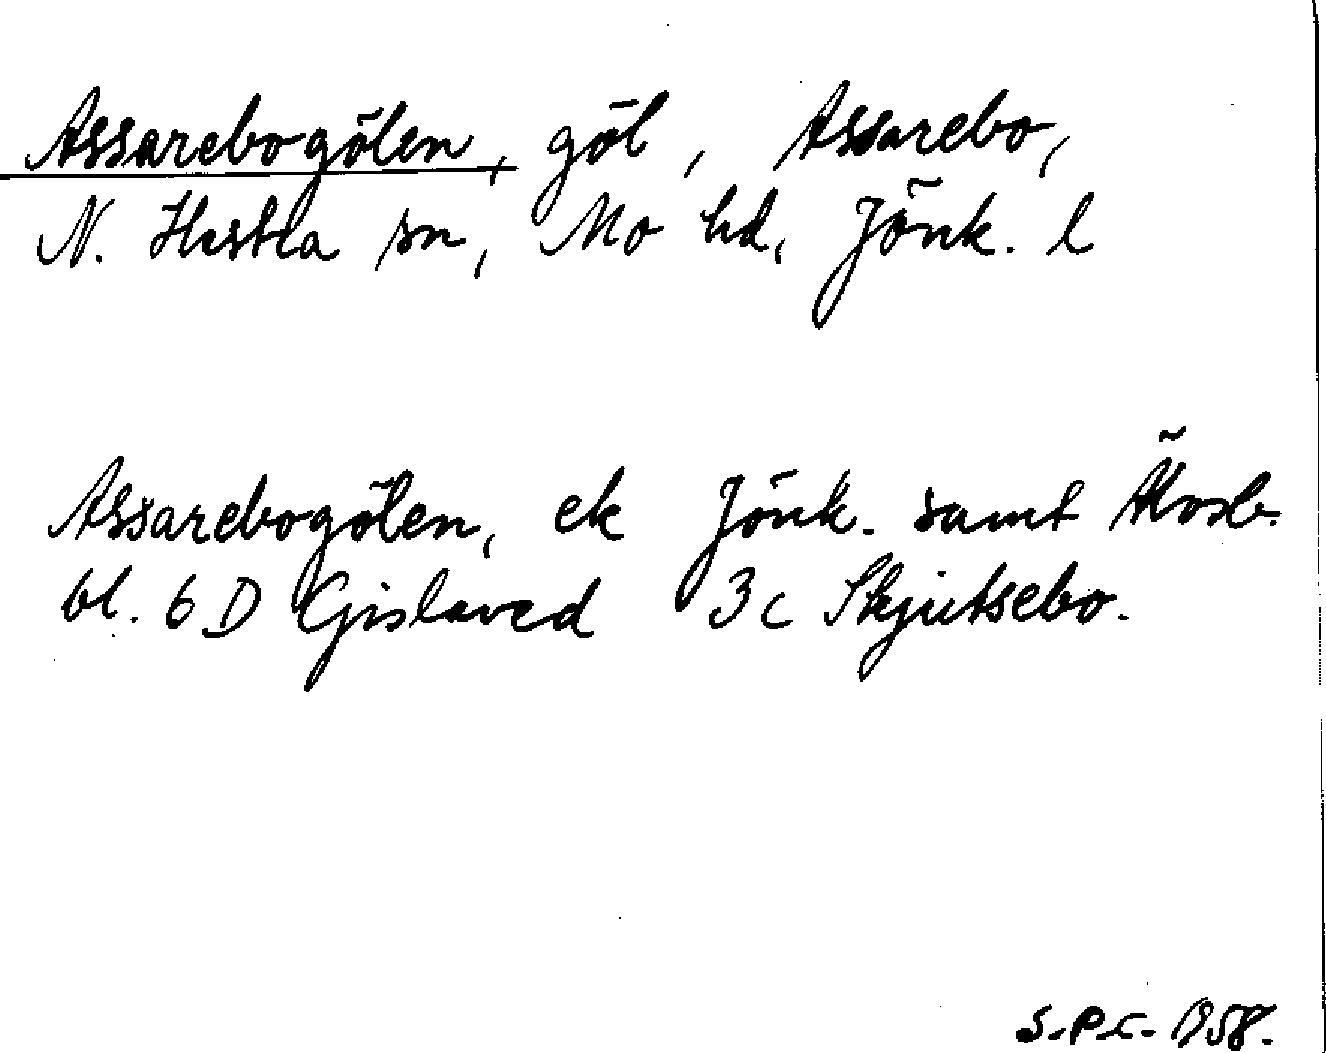 Assarebogölen, göl, Assarebo,
N. Hestra sn, Mo hd, Jönk. l
Assarebogölen, ek Jönk. samt Älvsb.
bl. 6 D Gislaved 3c Skjutsebo.
S.P.C. 1958.